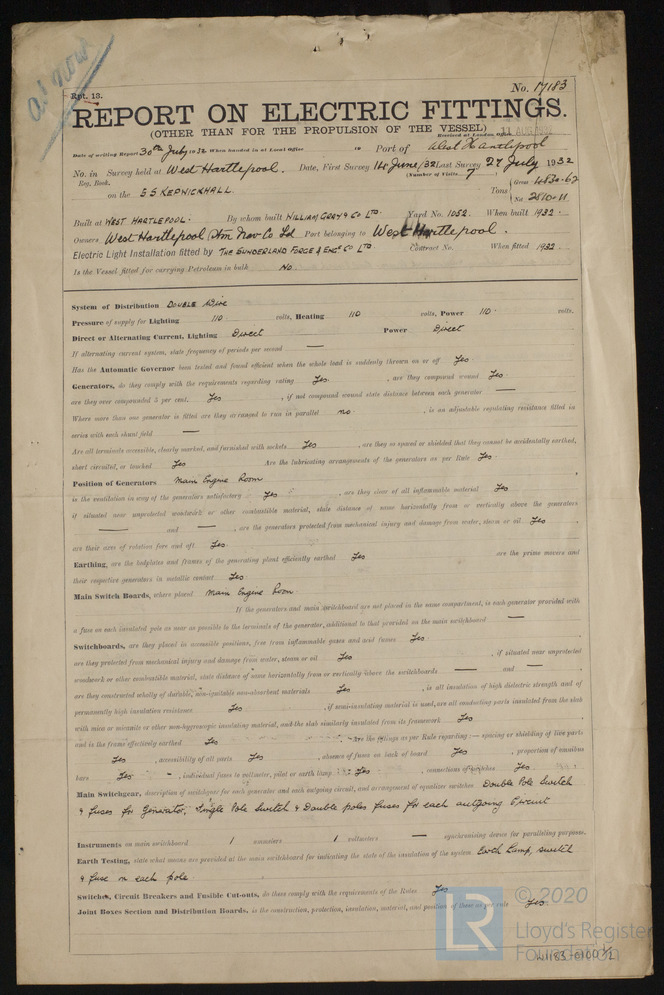 at now
Rpt. 13.
No. 17183
REPORT ON ELECTRIC FITTINGS.
(OTHER THAN FOR THE PROPULSION OF THE VESSEL)
Received at London Office 11 AUG 1932
Date of writing Report 30th July 1932 When handed in at Local Office 19 Port of West Hartlepool
No. in Survey held at West Hartlepool. Date, First Survey 14 June/32 Last Survey 27 July 1932
Reg. Book. (Number of Visits 7)
on the SS KEPWICKHALL Tons { Gross 4830.67
Net 2810.11
Built at WEST HARTLEPOOL. By whom built WILLIAM GRAY & Co LTD. Yard No. 1052. When built 1932
Owners West Hartlepool Stm Nav Co. Ld Port belonging to West Hartlepool.
Electric Light Installation fitted by THE SUNDERLAND FORGE & ENGG Co LTD. Contract No. When fitted 1932.
Is the Vessel fitted for carrying Petroleum in bulk No.
System of Distribution DOUBLE Wire
Pressure of supply for Lighting 110 volts, Heating 110 volts, Power 110 volts.
Direct or Alternating Current, Lighting Direct Power Direct
If alternating current system, state frequency of periods per second —
Has the Automatic Governor been tested and found efficient when the whole load is suddenly thrown on or off Yes.
Generators, do they comply with the requirements regarding rating Yes. , are they compound wound Yes
are they over compounded 5 per cent. Yes , if not compound wound state distance between each generator —
Where more than one generator is fitted are they arranged to run in parallel no. , is an adjustable regulating resistance fitted in
series with each shunt field —
Are all terminals accessible, clearly marked, and furnished with sockets Yes , are they so spaced or shielded that they cannot be accidentally earthed,
short circuited, or touched Yes Are the lubricating arrangements of the generators as per Rule Yes.
Position of Generators Main Engine Room
is the ventilation in way of the generators satisfactory Yes , are they clear of all inflammable material Yes
if situated near unprotected woodwork or other combustible material, state distance of same horizontally from or vertically above the generators
— and — , are the generators protected from mechanical injury and damage from water, steam or oil Yes
are their axes of rotation fore and aft Yes.
Earthing, are the bedplates and frames of the generating plant efficiently earthed Yes are the prime movers and
their respective generators in metallic contact Yes
Main Switch Boards, where placed Main Engine Room
If the generators and main switchboard are not placed in the same compartment, is each generator provided with
a fuse on each insulated pole as near as possible to the terminals of the generator, additional to that provided on the main switchboard —
Switchboards, are they placed in accessible positions, free from inflammable gases and acid fumes Yes
are they protected from mechanical injury and damage from water, steam or oil Yes , if situated near unprotected
woodwork or other combustible material, state distance of same horizontally from or vertically above the switchboards — and —
are they constructed wholly of durable, non-ignitable non-absorbent materials Yes , is all insulation of high dielectric strength and of
permanently high insulation resistance Yes , if semi-insulating material is used, are all conducting parts insulated from the slab
with mica or micanite or other non-hygroscopic insulating material, and the slab similarly insulated from its framework Yes
and is the frame effectively earthed Yes Are the fittings as per Rule regarding:— spacing or shielding of live parts
Yes , accessibility of all parts Yes , absence of fuses on back of board Yes , proportion of omnibus
bars Yes , individual fuses to voltmeter, pilot or earth lamp Yes , connections of switches Yes
Main Switchgear, description of switchgear for each generator and each outgoing circuit, and arrangement of equalizer switches Double Pole Switch
& fuses for Generator, Single Pole Switch & Double poles fuses for each outgoing Circuit
Instruments on main switchboard 1 ammeters 1 voltmeters — synchronising device for paralleling purposes.
Earth Testing, state what means are provided at the main switchboard for indicating the state of the insulation of the system Earth Lamp, switch
& fuse on each pole
Switches, Circuit Breakers and Fusible Cut-outs, do these comply with the requirements of the Rules Yes
Joint Boxes Section and Distribution Boards, is the construction, protection, insulation, material, and position of these as per rule Yes.
© 2020
LR Lloyd's Register
Foundation
W1183-0100 1/2